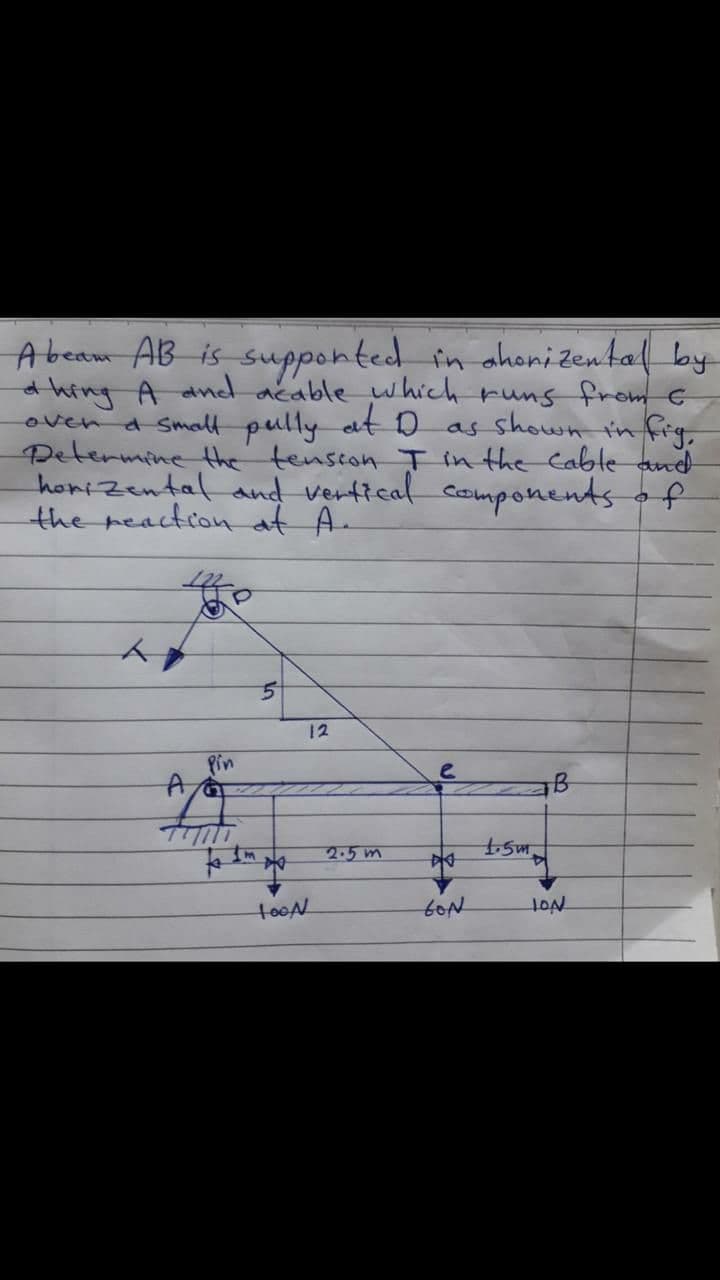 A beam AB is supported in ahorizental by
a hing A and acable which runs from c
over a small pully at D as shown in fig.
Determine the tension T in the cable and
horizental and vertical components of
the reaction at A.
D
T
5
12
Pin
A
C
B
1m
2.5 m
1.5m
100N
60N
10N